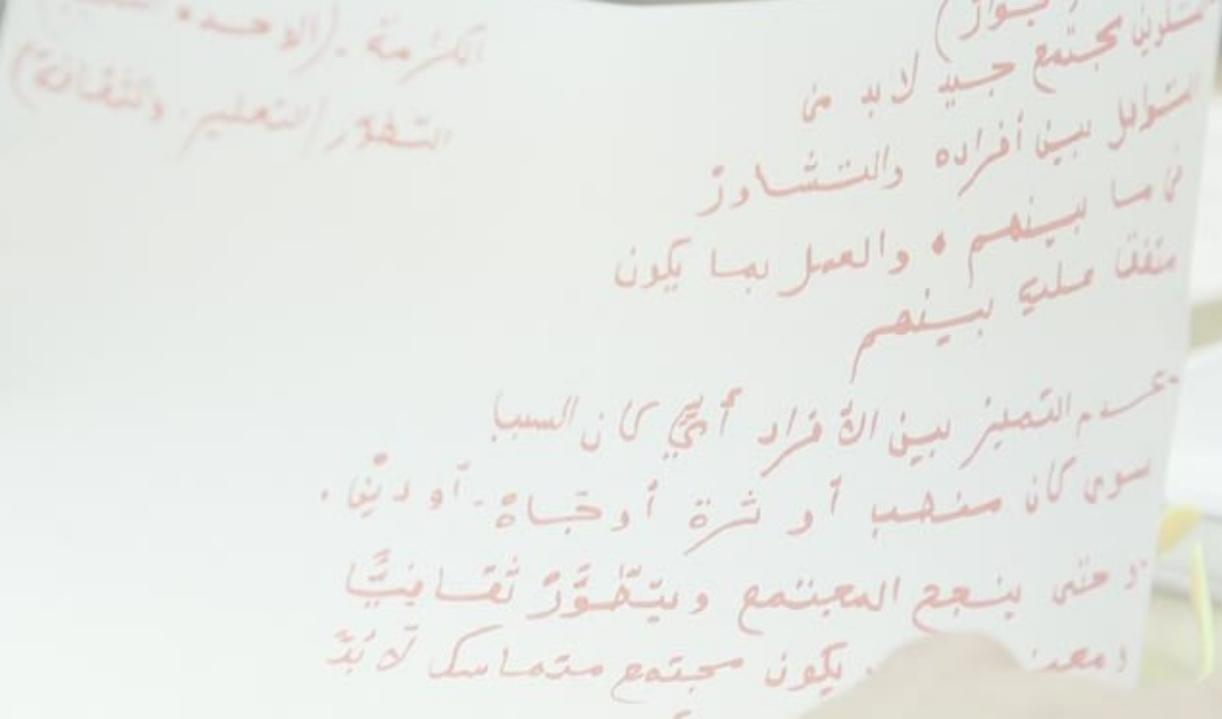 الكرامة. (الوحده
التطوّر (التعليم. والثقافة)
لتكوين مجتمع جيد لا بد من
التواصل بين أفراده والتشاور
في ما بينهم. والعمل بما يكون
متفق عليه بينهم
-عدم التميز بين الأفراد أيّ كان السبب
سوى كان منصب أو ثرة أو حياة. أو دين.
- حتى ينجح المجتمع ويتطوَّرْ ثقافيًّا
يكون مجتمع متماسك لا بُدَّ